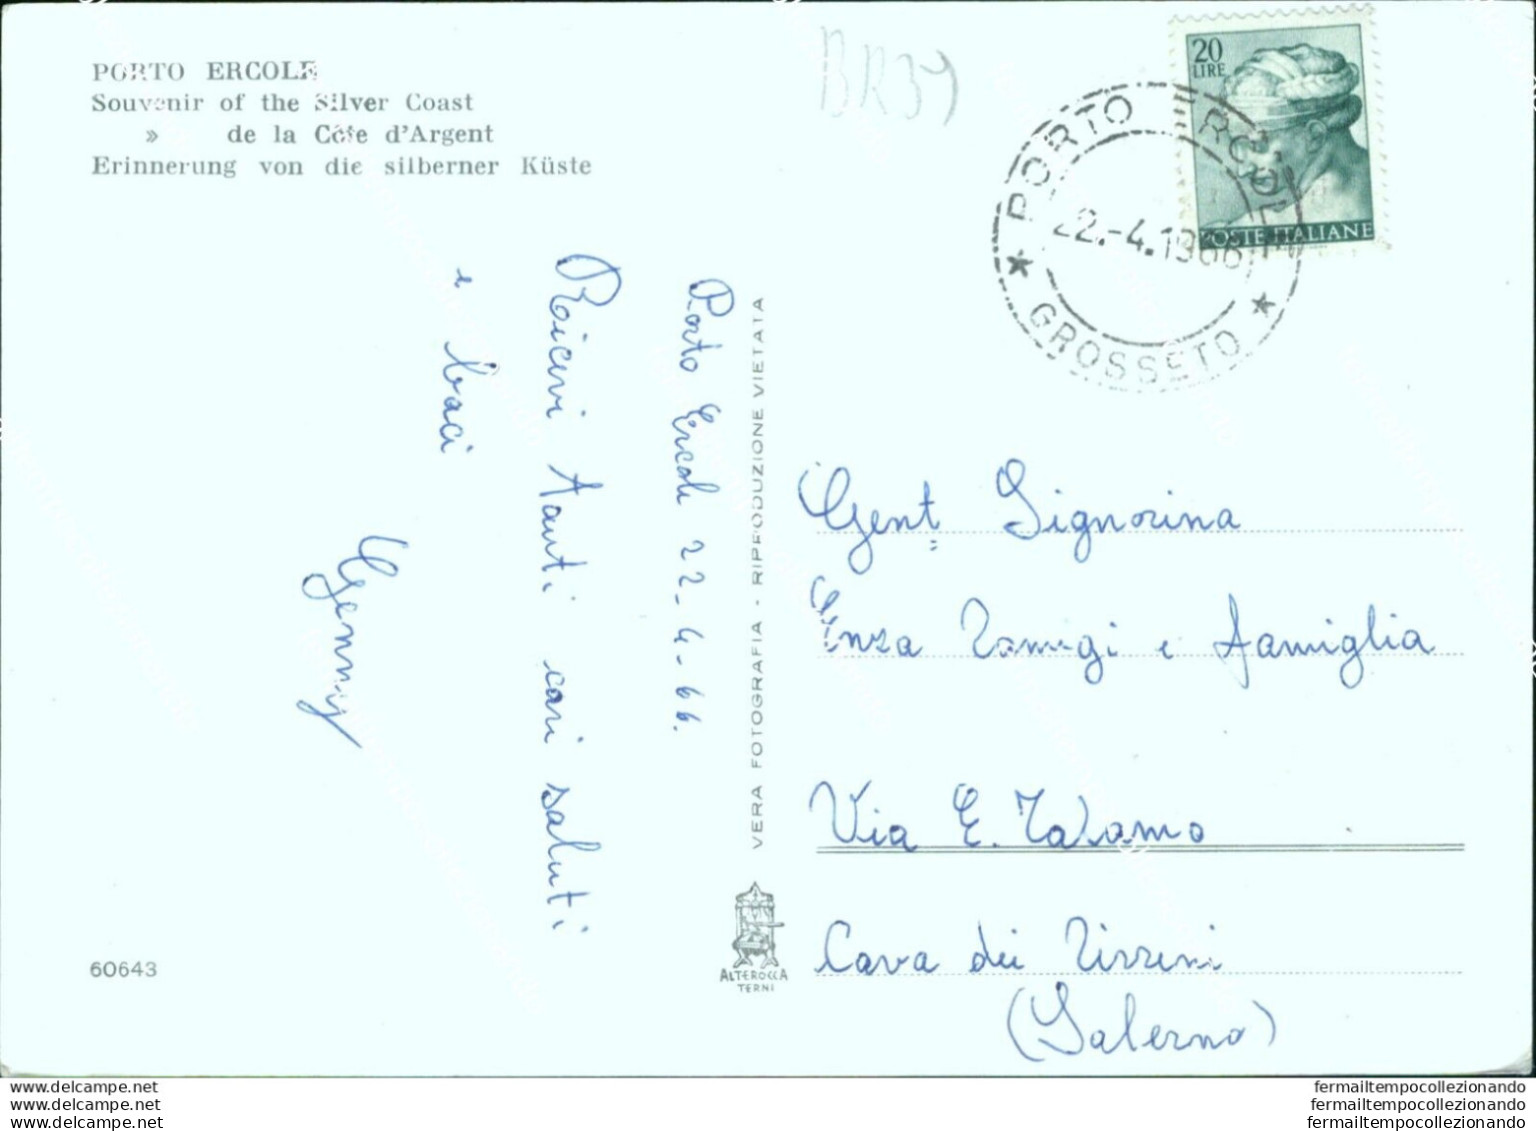 PORTO ERCOLE
Souvenir of the Silver Coast
» de la Côte d'Argent
Erinnerung von die silberner Küste
BR39
20
LIRE
POSTE ITALIANE
PORTO ERCOLE
22.-4.1966
★ GROSSETO ★
Porto Ercole 22-4-66.
Ricevi tanti cari saluti
e baci
Genny
VERA FOTOGRAFIA - RIPRODUZIONE VIETATA
Gent Signorina
Enza e famiglia
Via E. Talamo
Cava dei Tirreni
(Salerno)
60643
ALTEROCCA
TERNI
www.delcampe.net
www.delcampe.net
www.delcampe.net
fermailtempocollezionando
fermailtempocollezionando
fermailtempocollezionando